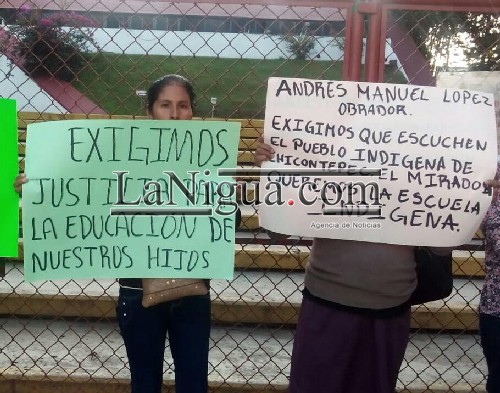 EXIGIMOS
JUSTICIA
LA EDUCACIÓN DE
NUESTROS HIJOS
ANDRES MANUEL LOPEZ
OBRADOR.
EXIGIMOS QUE ESCUCHEN
EL PUEBLO INDIGENA DE
CHICONTEPEC, EL MIRADOR
LA ESCUELA
INDIGENA.
LaNigua.com
Agencia de Noticias